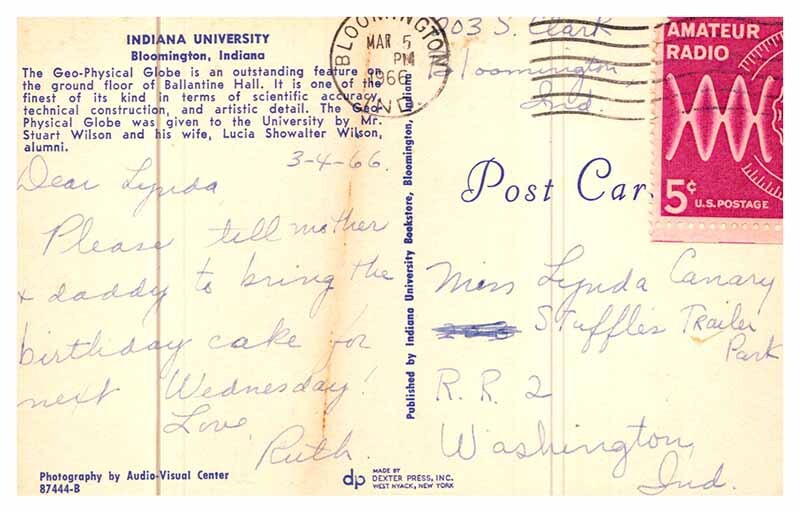 INDIANA UNIVERSITY
Bloomington, Indiana
The Geo-Physical Globe is an outstanding feature on
the ground floor of Ballantine Hall. It is one of the
finest of its kind in terms of scientific accuracy,
technical construction, and artistic detail. The Geo-
Physical Globe was given to the University by Mr.
Stuart Wilson and his wife, Lucia Showalter Wilson,
alumni.
3-4-66.
Dear Lynda,
Please tell mother
& daddy to bring the
birthday cake for
next Wednesday!
Love,
Ruth.
Photography by Audio-Visual Center
87444-B
Published by Indiana University Bookstore, Bloomington, Indiana
dp
MADE BY
DEXTER PRESS, INC.
WEST NYACK, NEW YORK
BLOOMINGTON
MAR 5
PM
1966
IND
903 S. Clark
Bloomington,
Ind.
AMATEUR
RADIO
5¢ U.S. POSTAGE
Post Car
Miss Lynda Canary
Stuffles Trailer
Park
R. R. 2
Washington,
Ind.